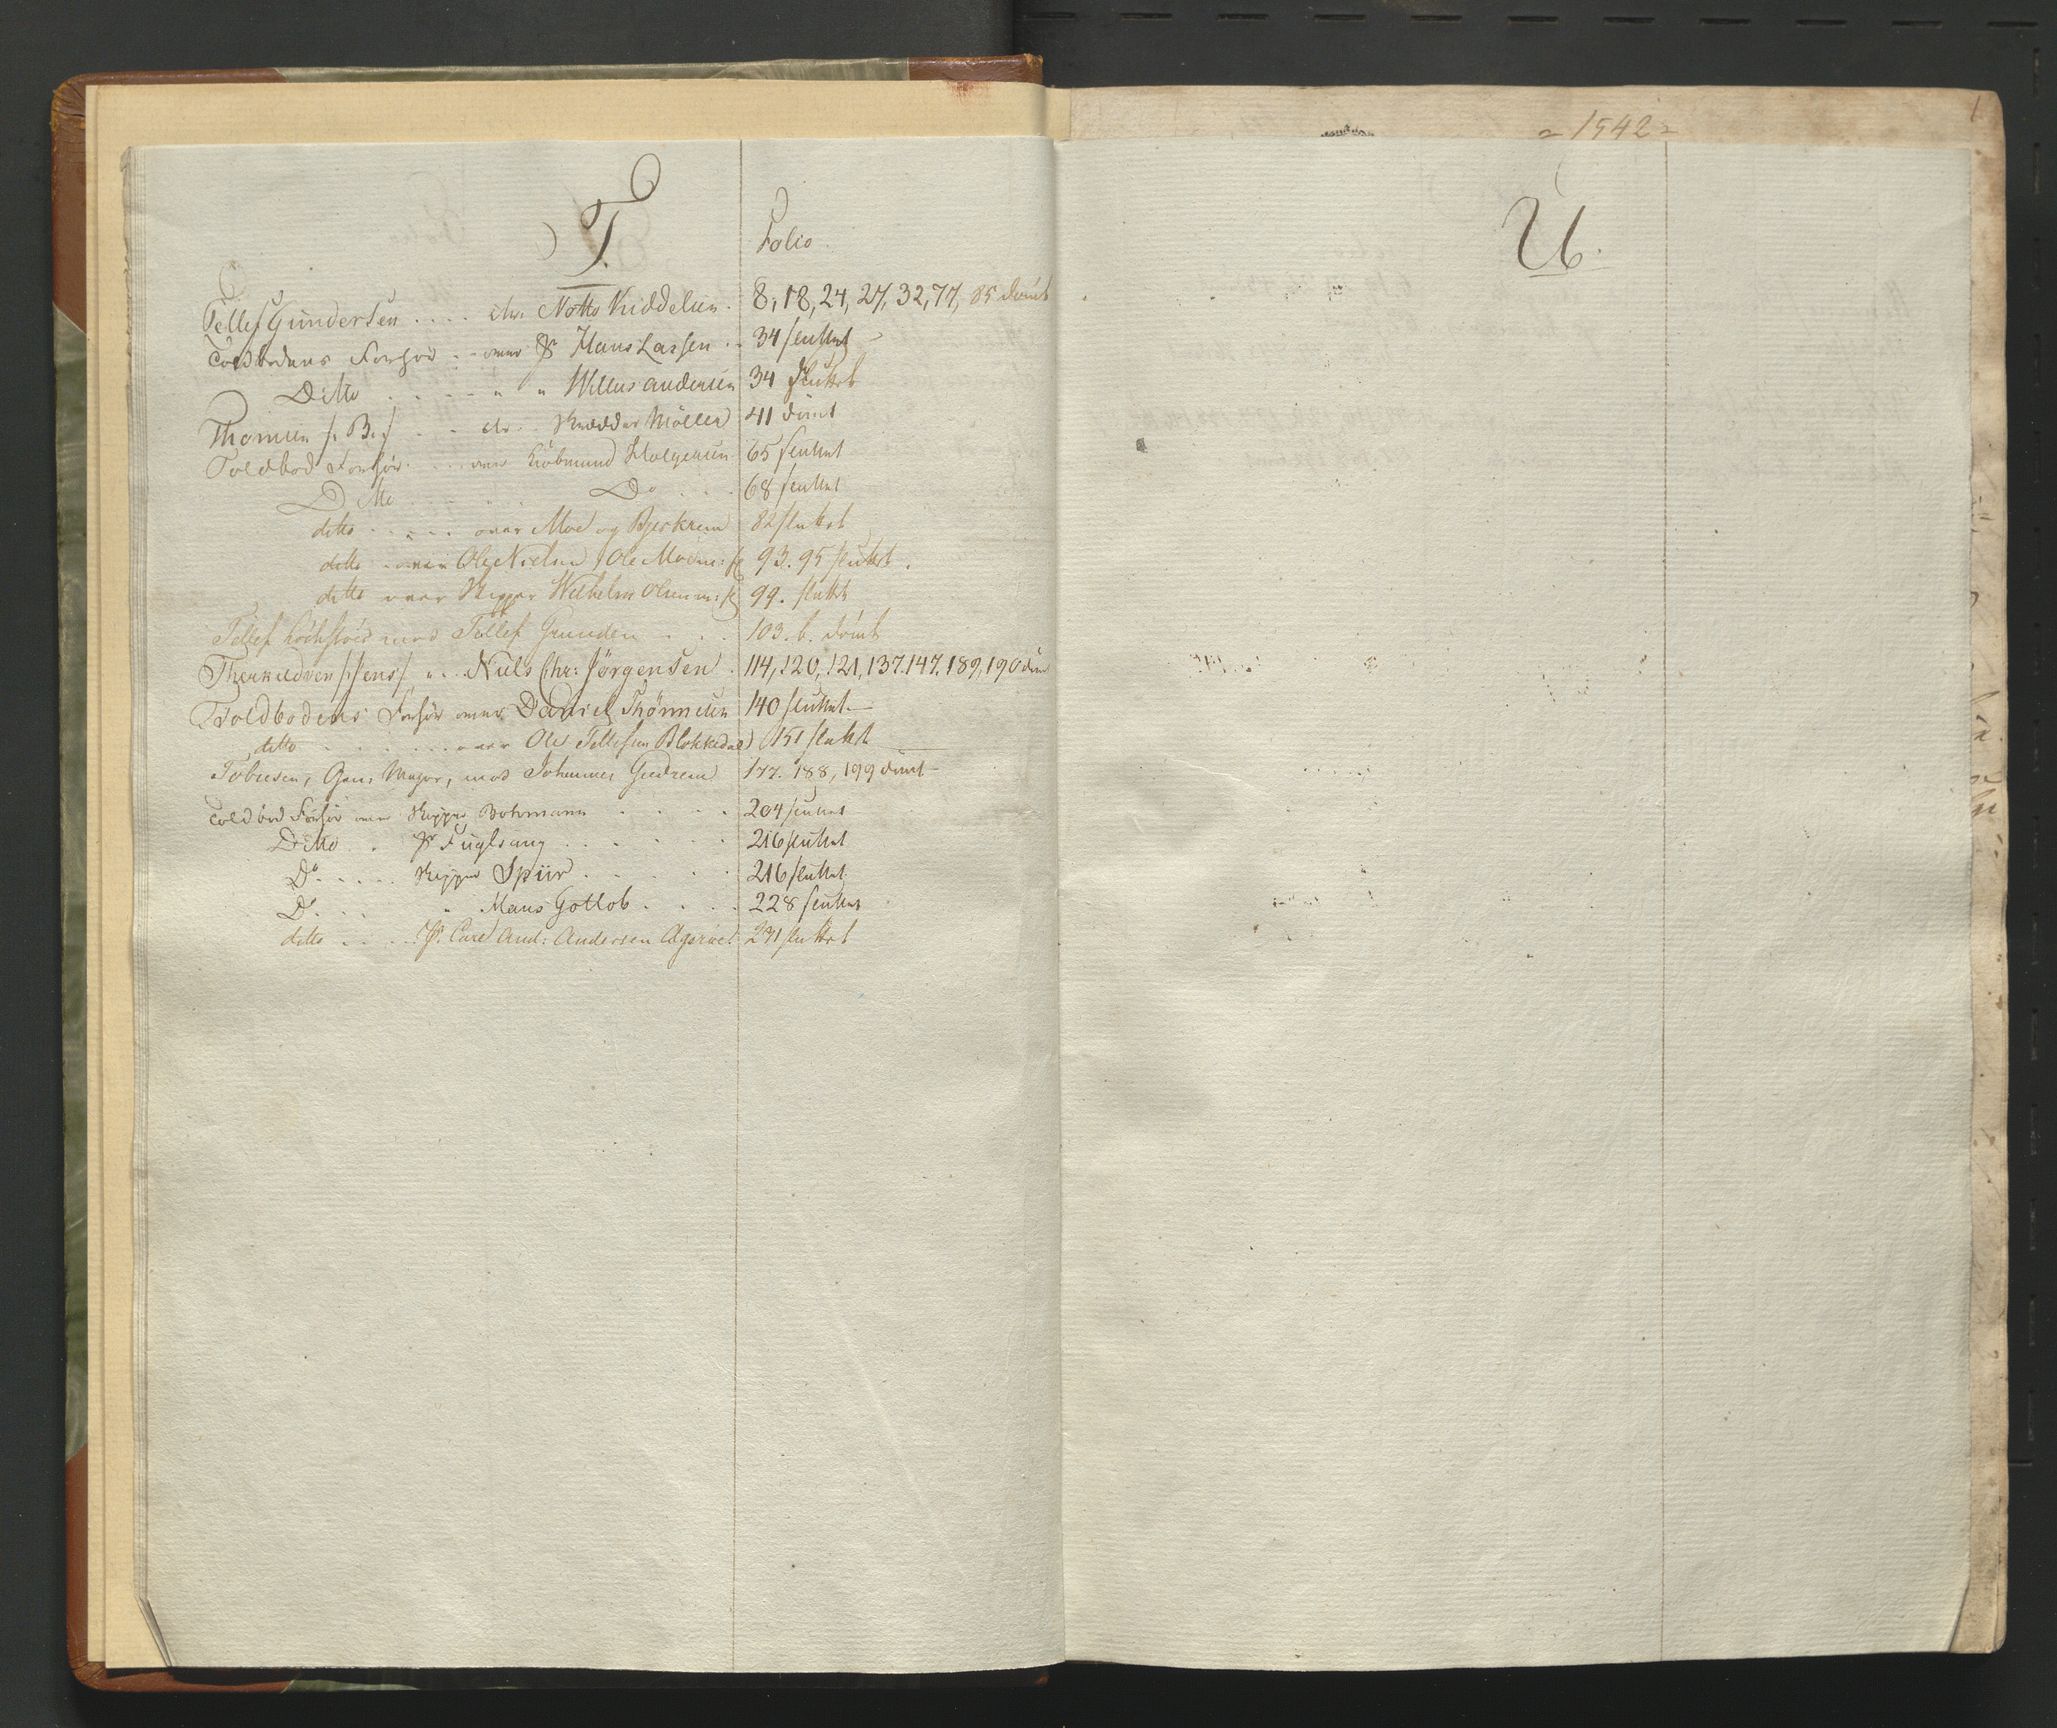 T.
Folio.
Tellef Gundersen .... ctr. Notto Kiddelsen. 8, 18, 24, 27, 32, 77, 85 dömt
Toldbodens Forhør .. over Sr Hans Larsen .. 34 sluttet
Ditto ..... " " Willus Andersen 34 sluttet
Thomsen /: B :/ .. ctr. Skrædder Möller 41 dömt
Toldbod Forhör .... over Kiöbmand Holgersen 65 sluttet
Ditto ...... Do ... 68 sluttet
ditto ..... over Moe og Bjerkrem 82 sluttet
ditto .. over Ole Nielsen, Ole Moe m: fl 93. 95 sluttet.
ditto over Skipper Wilhelm Olsen m: fl 99. sluttet
Tellef mod Tellef Grunden ... 103. b. dömt
Therkildsen /: Jens :/ " .. Niels Chr: Jörgensen. 114, 120, 121, 137. 147. 189, 190 döm
Toldbodens Forhör over Daniel Thömmesen 140 sluttet
ditto ....... over Ole Tellefsen Blokkedal 151 slutt
Tobiesen, Gen: Major, mod Johannes Gudrem 177. 188, 199 dömt
Toldbod Forhör over Skipper Bohmann .... 204 sluttet
Ditto. . Sr Fuglsang ...... 216 sluttet
Do ..... Skipper Spüir ..... 216 sluttet
Do .... " Mans Gotlob .... 228 sluttet
ditto .... Sr. Carl And: Andersen Agerøe 231 sluttet
= 1542 =
1
U.